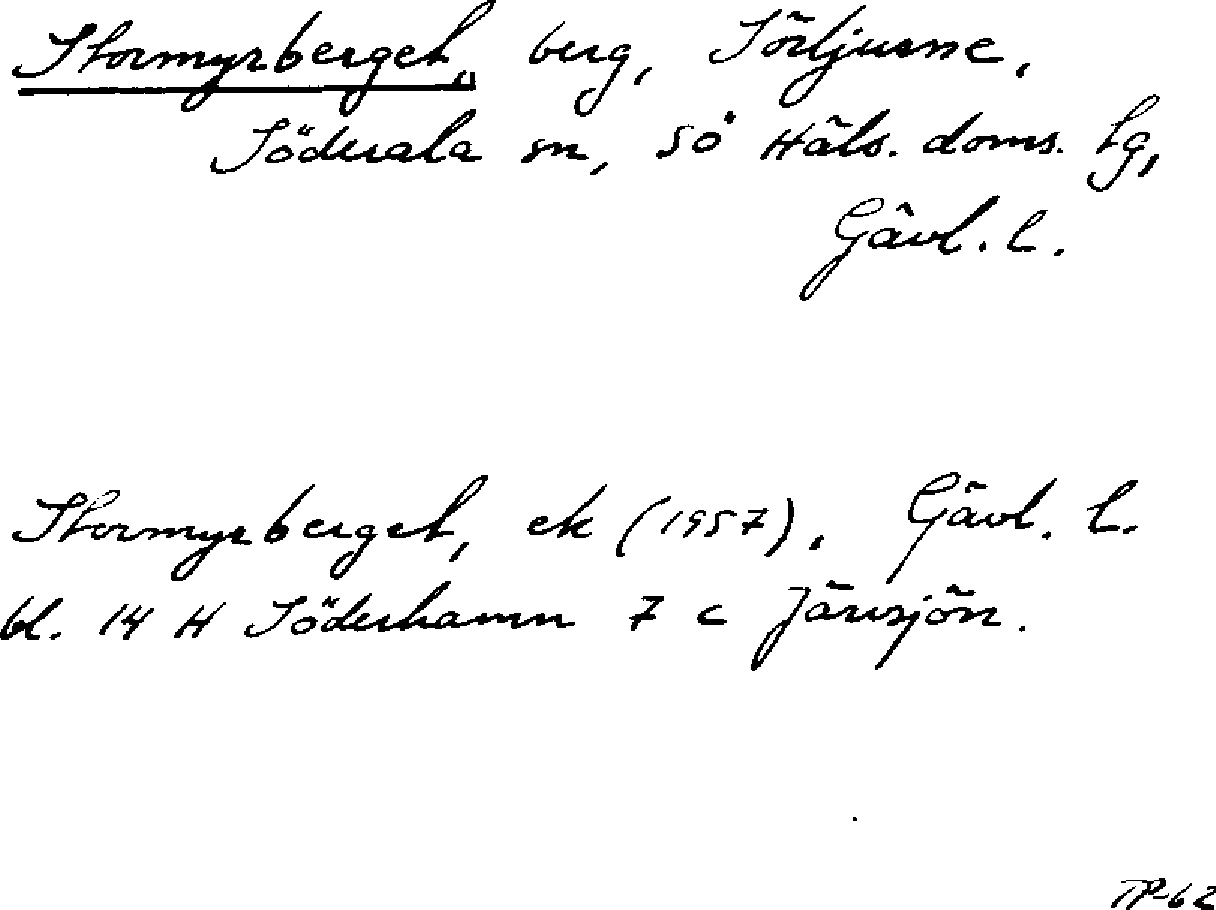 Stormyrberget, berg, Sörljusne,
Söderala sn, Sö Häls. doms. lg,
Gävl. l.
Stormyrberget, ek (1957), Gävl. l.
bl. 14 H Söderhamn 7 c Järvsjön.
TP-62